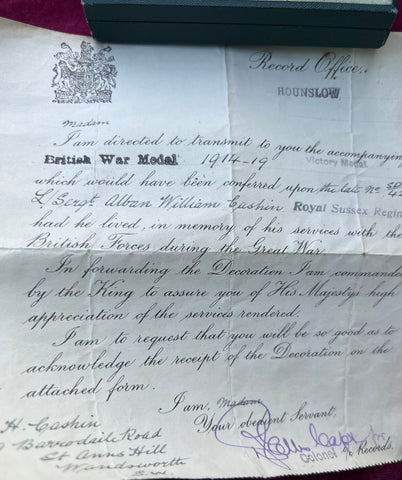 Record Office,
HOUNSLOW
Madam
I am directed to transmit to you the accompanying
British War Medal 1914-19 Victory Medal
which would have been conferred upon the late No
L/Sergt Alban William Cashin Royal Sussex Regim
had he lived, in memory of his services with the
British Forces during the Great War.
In forwarding the Decoration I am commanded
by the King to assure you of His Majesty's high
appreciation of the services rendered.
I am to request that you will be so good as to
acknowledge the receipt of the Decoration on the
attached form.
I am, Madam
Your obedient Servant,
Colonel i/c Records.
H. Cashin
Barrodaile Road
St Anns Hill
Wandsworth
S.W